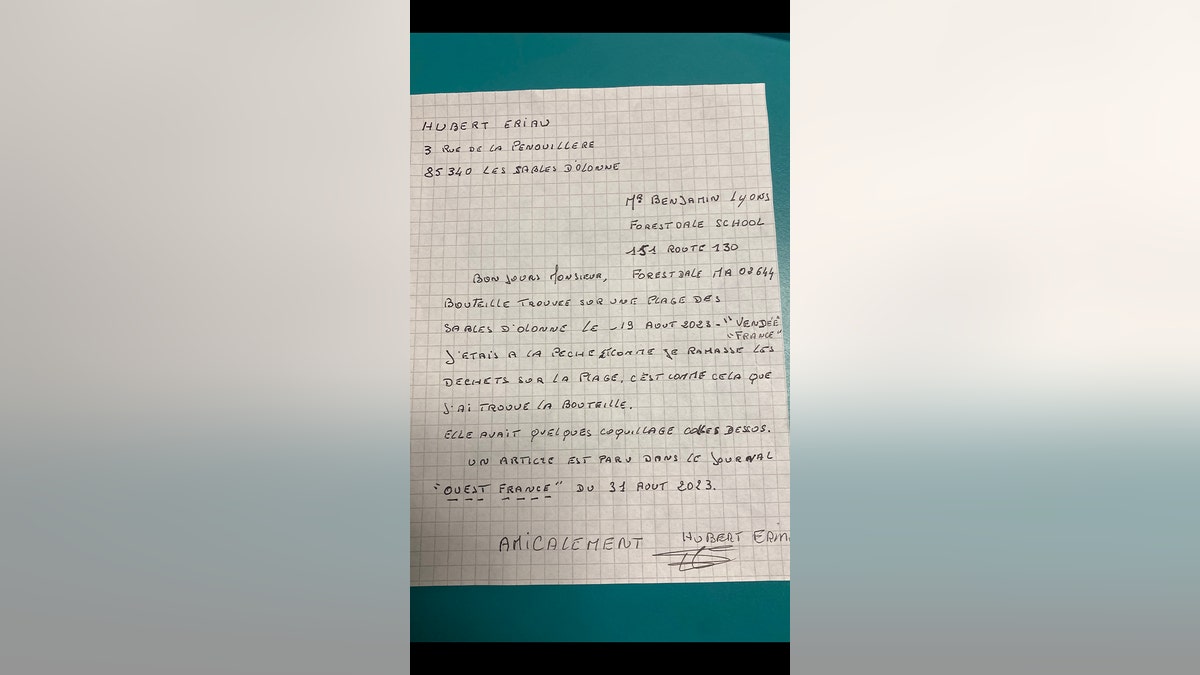 HUBERT ERIAU
3 RUE DE LA PENOUILLERE
85340 LES SABLES D'OLONNE
MR BENJAMIN LYONS
FORESTDALE SCHOOL
151 ROUTE 130
FORESTDALE MA 02644
BONJOURS MONSIEUR,
BOUTEILLE TROUVEE SUR UNE PLAGE DES
SABLES D'OLONNE LE -19 AOUT 2023- "VENDÉE"
"FRANCE"
J'ETAIS A LA PECHE ET COMME JE RAMASSE LES
DECHETS SUR LA PLAGE, C'EST COMME CELA QUE
J'AI TROUVE LA BOUTEILLE.
ELLE AVAIT QUELQUES COQUILLAGE COLLES DESSUS.
UN ARTICLE EST PARU DANS LE JOURNAL
"OUEST FRANCE" DU 31 AOUT 2023.
AMICALEMENT HUBERT